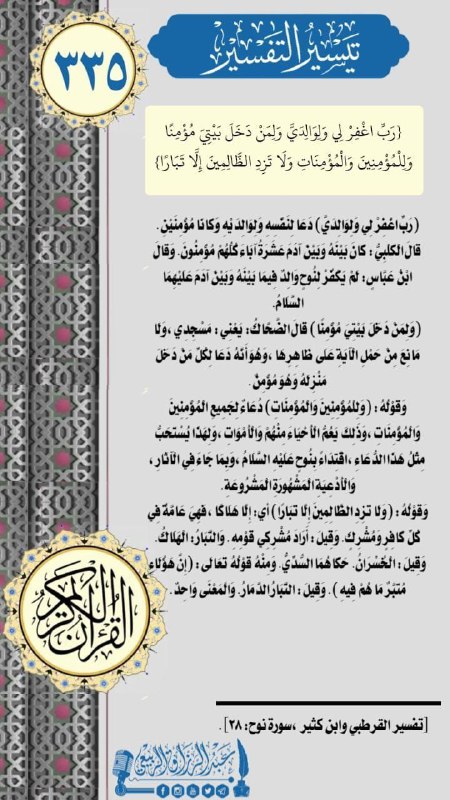 ٣٣٥
تيسير التفسير
{رَبِّ اغْفِرْ لِي وَلِوَالِدَيَّ وَلِمَنْ دَخَلَ بَيْتِيَ مُؤْمِنًا
وَلِلْمُؤْمِنِينَ وَالْمُؤْمِنَاتِ وَلَا تَزِدِ الظَّالِمِينَ إِلَّا تَبَارًا}
(رَبِّ اغْفِرْ لِي وَلِوَالِدَيَّ) دَعَا لِنَفْسِهِ وَلِوَالِدَيْهِ وَكَانَا مُؤْمِنَيْنِ.
قَالَ الكَلْبِيُّ: كَانَ بَيْنَهُ وَبَيْنَ آدَمَ عَشَرَةُ آبَاءَ كُلُّهُمْ مُؤْمِنُونَ. وَقَالَ
ابْنُ عَبَّاسٍ: لَمْ يَكْفُرْ لِنُوحٍ وَالِدٌ فِيمَا بَيْنَهُ وَبَيْنَ آدَمَ عَلَيْهِمَا
السَّلَامُ.
(وَلِمَنْ دَخَلَ بَيْتِيَ مُؤْمِنًا) قَالَ الضَّحَّاكُ: يَعْنِي: مَسْجِدِي، وَلَا
مَانِعَ مِنْ حَمْلِ الْآيَةِ عَلَى ظَاهِرِهَا، وَهُوَ أَنَّهُ دَعَا لِكُلِّ مَنْ دَخَلَ
مَنْزِلَهُ وَهُوَ مُؤْمِنٌ.
وَقَوْلُهُ: (وَلِلْمُؤْمِنِينَ وَالْمُؤْمِنَاتِ) دُعَاءٌ لِجَمِيعِ الْمُؤْمِنِينَ
وَالْمُؤْمِنَاتِ، وَذَلِكَ يَعُمُّ الْأَحْيَاءَ مِنْهُمْ وَالْأَمْوَاتَ، وَلِهَذَا يُسْتَحَبُّ
مِثْلُ هَذَا الدُّعَاءِ، اقْتِدَاءً بِنُوحٍ عَلَيْهِ السَّلَامُ، وَبِمَا جَاءَ فِي الْآثَارِ،
وَالْأَدْعِيَةِ الْمَشْهُورَةِ الْمَشْرُوعَةِ.
وَقَوْلُهُ: (وَلَا تَزِدِ الظَّالِمِينَ إِلَّا تَبَارًا) أَي: إِلَّا هَلَاكًا، فَهِيَ عَامَّةٌ فِي
كُلِّ كَافِرٍ وَمُشْرِكٍ. وَقِيلَ: أَرَادَ مُشْرِكِي قَوْمِهِ. وَالتَّبَارُ: الْهَلَاكُ.
وَقِيلَ: الْخُسْرَانُ. حَكَاهُمَا السُّدِّيُّ. وَمِنْهُ قَوْلُهُ تَعَالَى: (إِنَّ هَؤُلَاءِ
مُتَبَّرٌ مَا هُمْ فِيهِ). وَقِيلَ: التَّبَارُ الدَّمَارُ. وَالْمَعْنَى وَاحِدٌ.
القرآن الكريم
[تفسير القرطبي وابن كثير ،سورة نوح: ٢٨].
عبد الرزاق الربيعي